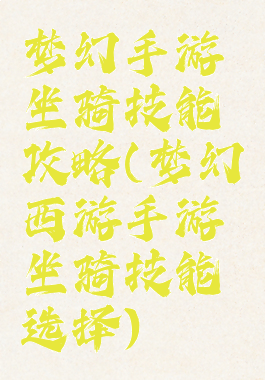 梦幻手游
坐骑技能
攻略(梦幻
西游手游
坐骑技能
选择)